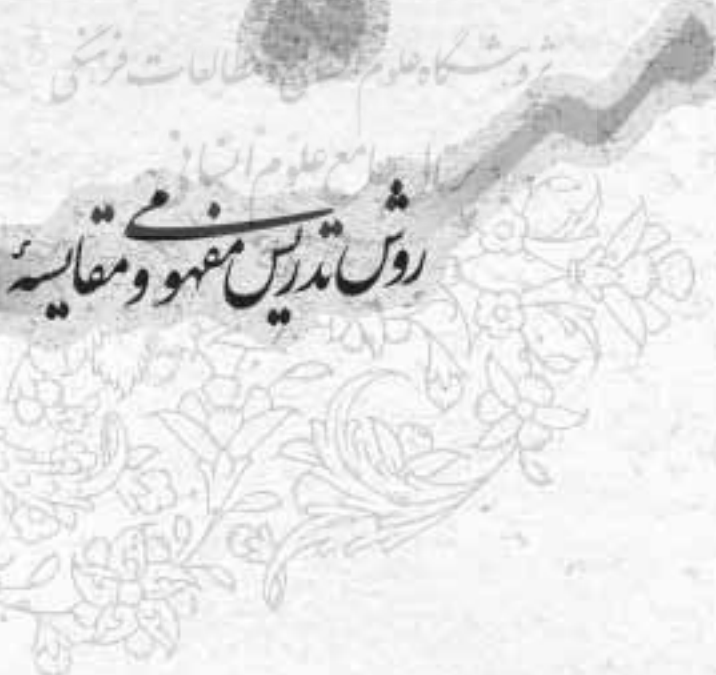 پژوهشگاه علوم انسانی و مطالعات فرهنگی
پرتال جامع علوم انسانی
روش تدریس مفهومی و مقایسهٔ